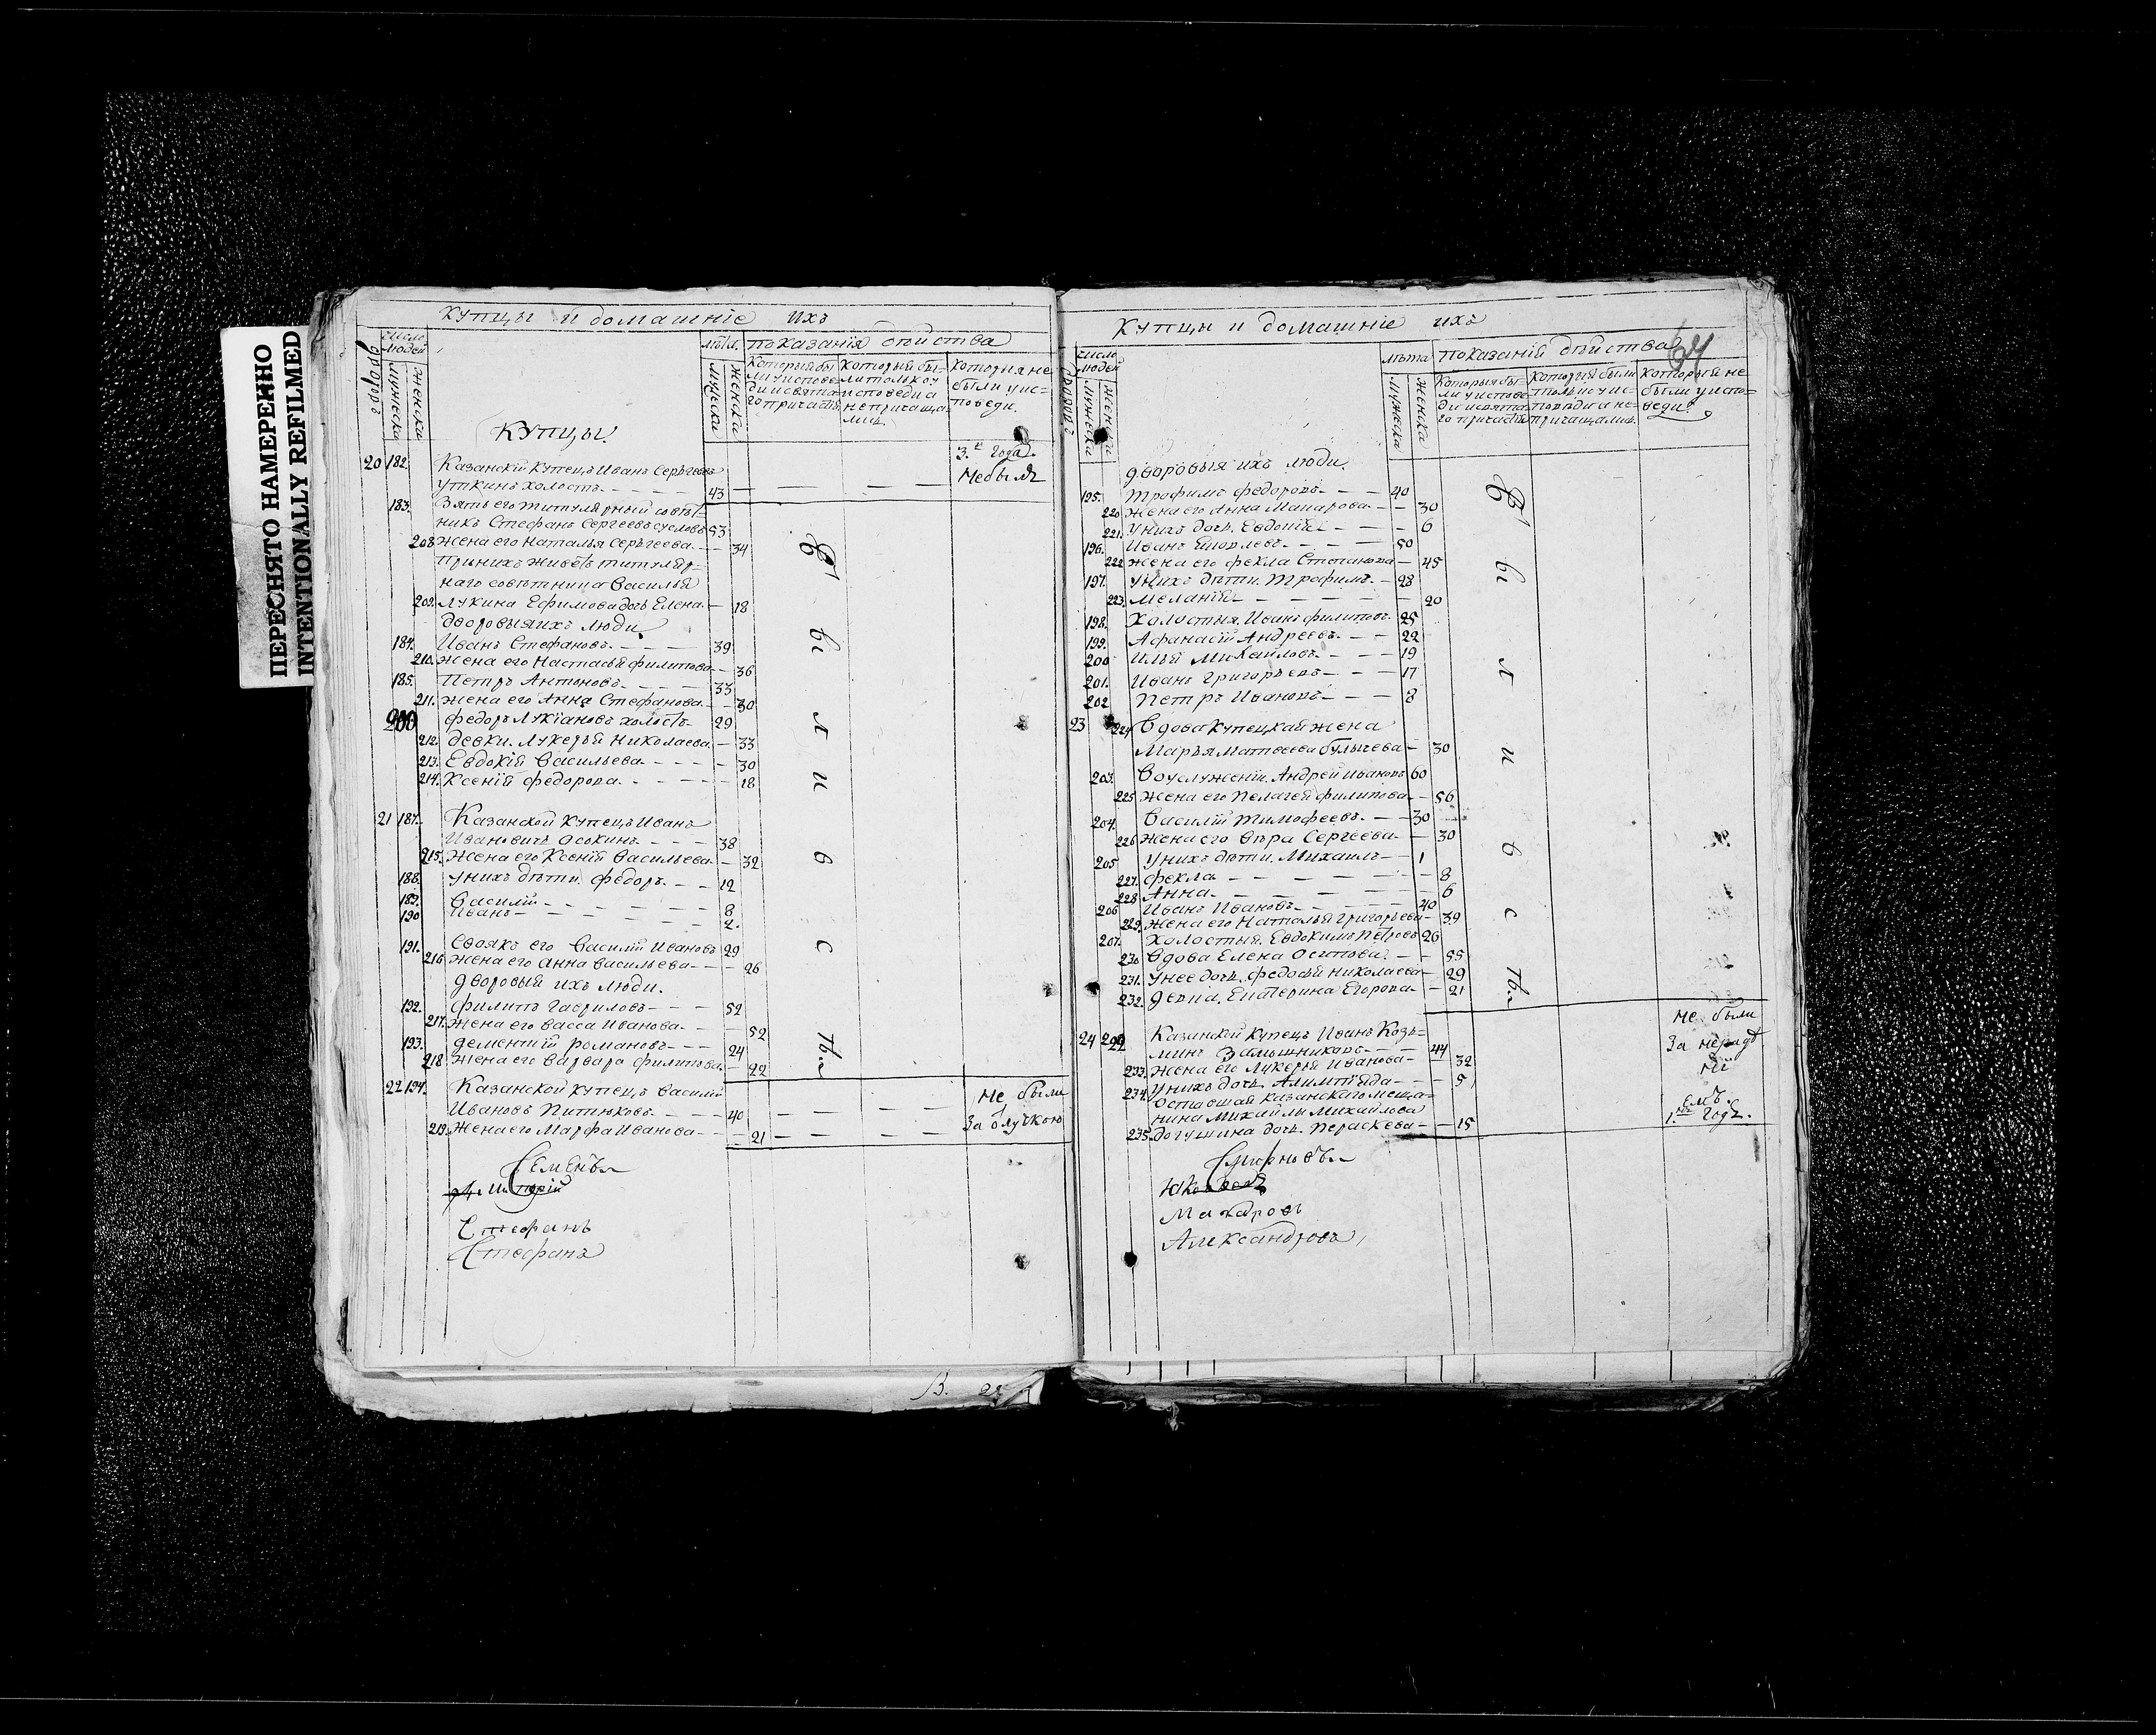 ПЕРЕСНЯТО НАМЕРЕННО
INTENTIONALLY REFILMED
Купцы и домашніе ихъ
число людей
лѣта
показанія дѣйства
дворы
мужеска
женска
мужеска
женска
Которыя бы-
ли у испове-
ди и свята-
го причастія
которыя бы-
ли только у
исповеди а
не причаща-
лись
которыя не
были у ис-
поведи.
Купцы
20 182. Казанскій купецъ Иванъ Серьгеевъ 3.й года.
Уткинъ холостъ. 43 Небылъ
183. Зять его титулярный совѣт-
никъ Стефанъ Сергеевъ Сусловъ 53
208 жена его Наталья Серьгеева. 34
При нихъ живетъ титуляр-
наго советника Василья
209. Лукина Ефимова дочь Елена 18
Дворовыя ихъ люди.
184. Иванъ Стефановъ. 39
210. жена его Настасья Филипова. 36
185. Петръ Антоновъ. 33
211. жена его Анна Стефанова. 30
Федоръ Лукіановъ холостъ 29
212. девки. Лукерья Николаева. 33
213. Евдокія Васильева 30
214. Ксенія Федорова. 18
21 187. Казанской купецъ Иванъ
Ивановичъ Оськинъ. 38
215. жена его Ксенія Васильева. 32
188. У нихъ дети. Федоръ. 12
189. Василій 8
190 Иванъ 2.
191. Своякъ его Василій Ивановъ 29
216. жена его Анна Васильева 26
дворовыя ихъ люди.
192. Филипъ Гавриловъ 52
217. жена его Васса Иванова. 52
193. Дементій Романовъ 24
218. жена его Варвара Филипова. 22
22 194. Казанской купецъ Василій Не были
Ивановъ Питюковъ. 40 За отлучкою
219. жена его Марфа Иванова 21
Б ы л и в с ть.
Семенъ
Стефанъ
Стефанъ
В.
Купцы и домашніе ихъ
64
число людей
лѣта
показанія дѣйства
мужеска
женска
мужеска
женска
Которыя бы-
ли у испове-
ди и свята-
го причастія
которыя были
только у ис-
поведи а не-
причащались
которыя не
были у испо-
веди.
дворовыя ихъ люди.
195. Трофимъ Федоровъ. 40
220 жена его Анна Макарова. 30
221. У нихъ дочь. Евдокія 6
196. Иванъ Яковлевъ. 50
222 жена его Фекла Степанова 45
197. У нихъ дети. Трофимъ. 28
223. Меланія 20
198. Холостыя. Иванъ Филиповъ 25
199. Афанасій Андреевъ. 22
200 Илья Михайловъ 19
201. Иванъ Григорьевъ 17
202 Петръ Ивановъ 8
23 224 Вдова купецкая жена
Марья Матвеева Булычева 30
203. Во услуженіи. Андрей Ивановъ 60
225 жена его Пелагея Филипова 56
204. Василій Тимофеевъ. 30
226 жена его Вера Сергеева. 30
205 У нихъ дети. Михаилъ 1
227. Фекла 8
228 Анна. 6
206 Иванъ Ивановъ. 40
229. жена его Наталья Григорьева 39
207. Холостыя. Евдокимъ Петровъ 26
230 Вдова Елена Осипова. 55
231. У нее дочь. Федосья Николаева 29
232. Девка. Екатерина Егорова. 21
24 Казанской купецъ Иванъ Козь- Не были
минъ 44 За нерадѣ
233. жена его Лукерья Иванова 32 ні
234. У нихъ дочь Алимпіяда 5 емъ.
Оставшая Казанскаго меща-
нина Михайлы Михайлова 1.й годъ.
235. дочь Параскева 15
Б ы л и в с ть.
Смирновъ
Макаровъ
Александровъ